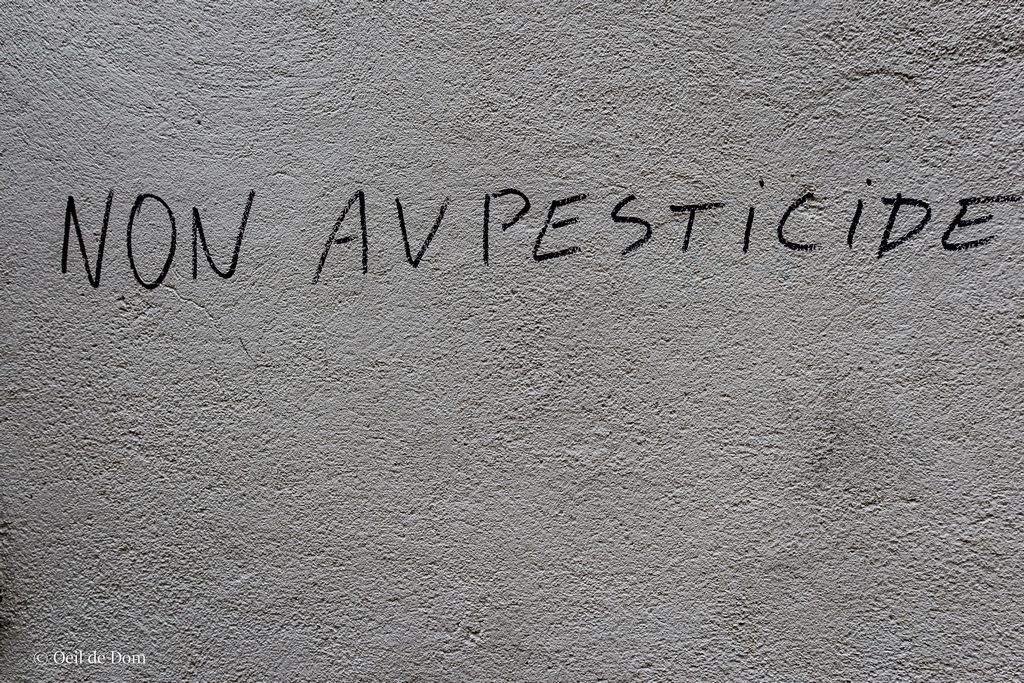 NON AV PESTiCiDE
© Oeil de Dom